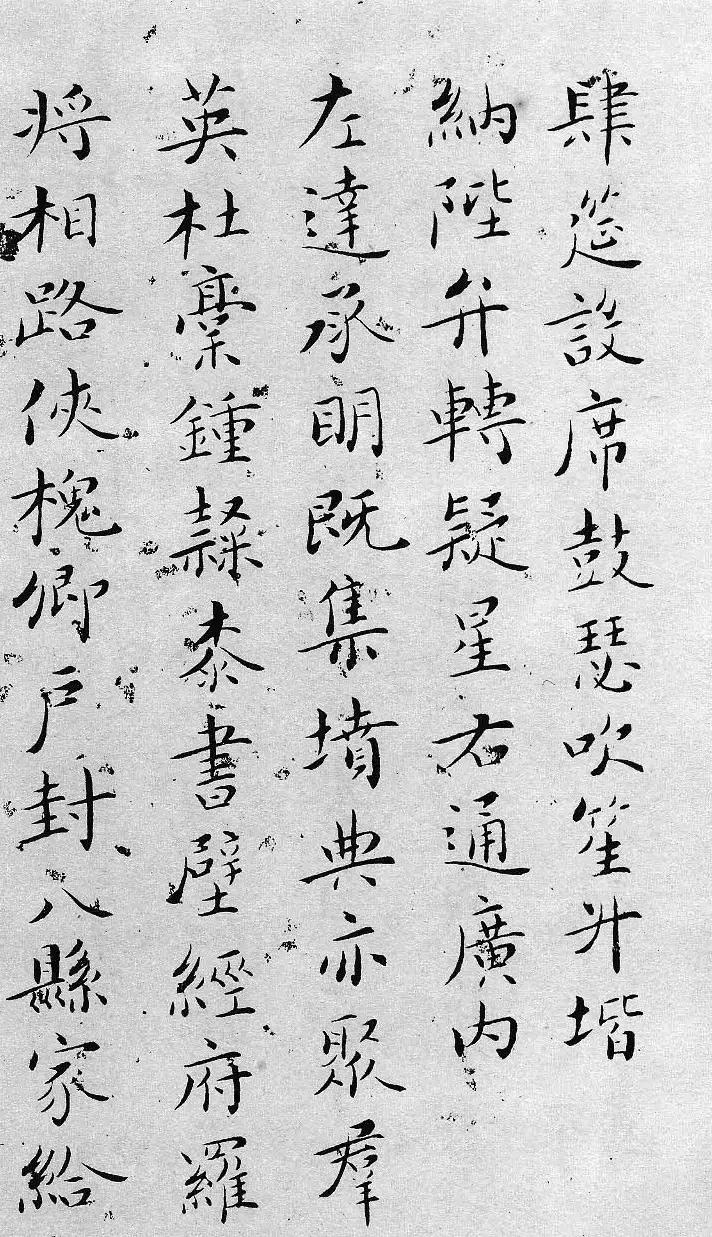 肆筵設席鼓瑟吹笙升堦
納陛弁轉疑星右通廣内
左達承明既集墳典亦聚羣
英杜稾鍾隸漆書壁經府羅
将相路俠槐卿戶封八縣家給